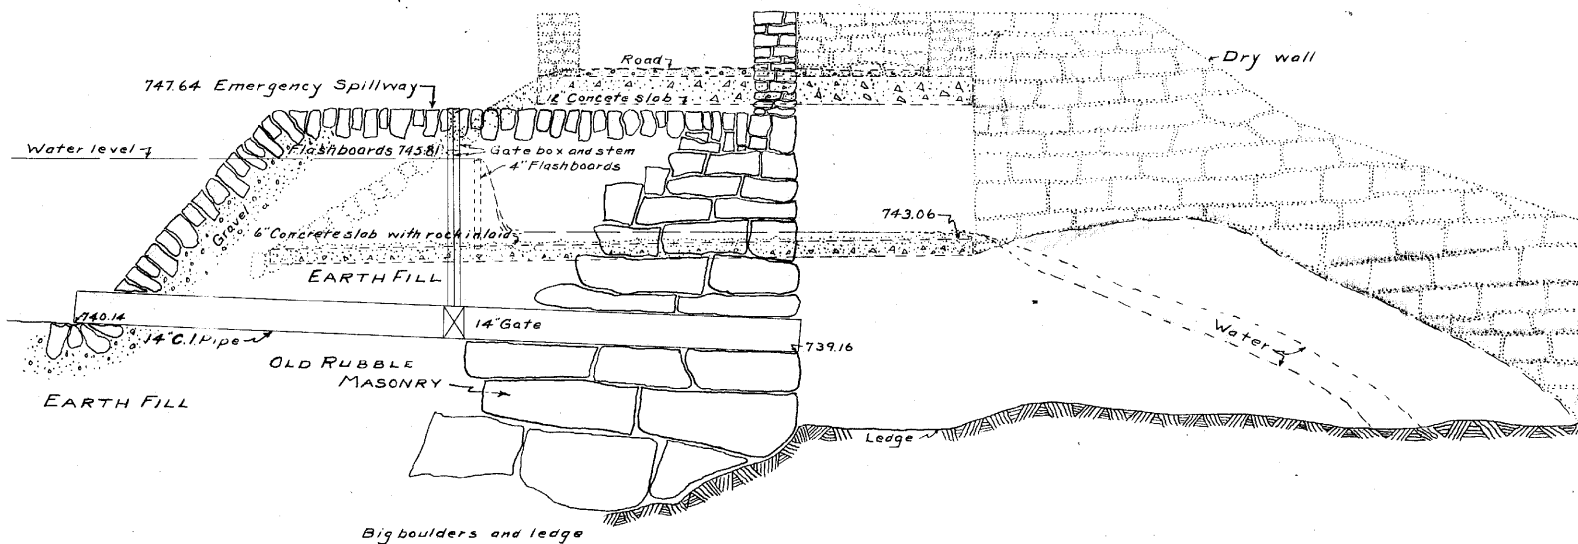 Road
Dry wall
747.64 Emergency Spillway
12" Concrete slab
Water level
Flashboards 745.81
Gate box and stem
4" Flashboards
Gravel
743.06
6" Concrete slab with rock inlaid
EARTH FILL
740.14
14" Gate
14" C.I. Pipe
739.16
Water
OLD RUBBLE
MASONRY
EARTH FILL
Ledge
Big boulders and ledge